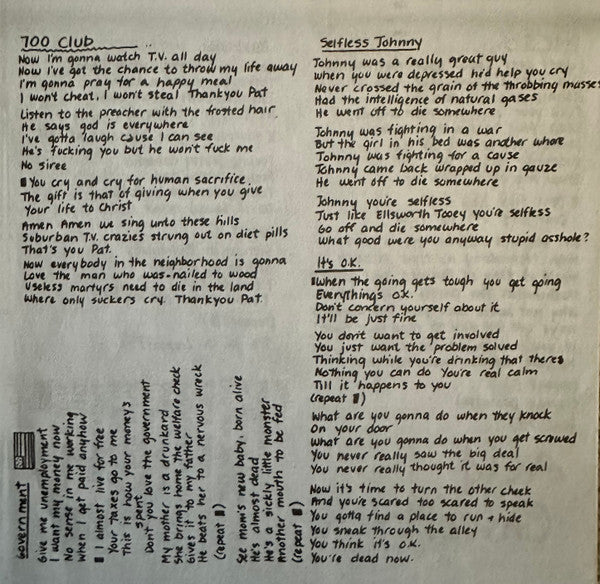 700 Club
Now I'm gonna watch T.V. all day
Now I've got the chance to throw my life away
I'm gonna pray for a happy meal
I won't cheat, I won't steal Thankyou Pat
Listen to the preacher with the frosted hair
He says god is everywhere
I've gotta laugh cause I can see
He's fucking you but he won't fuck me
No siree
You cry and cry for human sacrifice
The gift is that of giving when you give
Your life to Christ
Amen Amen we sing unto these hills
Suburban T.V. crazies strung out on diet pills
That's you Pat.
Now everybody in the neighborhood is gonna
Love the man who was nailed to wood
Useless martyrs need to die in the land
Where only suckers cry. Thankyou Pat.
Government
Give me unemployment
I want my money now
No sense in me working
When I get paid anyhow
I almost live for free
Your taxes go to me
This is how your money's
spent
Don't you love the government
My mother is a drunkard
She brings home the welfare check
Gives it to my father
He beats her to a nervous wreck
(repeat)
See mom's new baby, born alive
He's almost dead
He's a sickly little monster
Another mouth to be fed
(repeat)
Selfless Johnny
Johnny was a really great guy
When you were depressed he'd help you cry
Never crossed the grain of the throbbing masses
Had the intelligence of natural gases
He went off to die somewhere
Johnny was fighting in a war
But the girl in his bed was another whore
Johnny was fighting for a cause
Johnny came back wrapped up in gauze
He went off to die somewhere
Johnny you're selfless
Just like Ellsworth Tooey you're selfless
Go off and die somewhere
What good were you anyway stupid asshole?
It's O.K.
When the going gets tough you get going
Everythings o.k.
Don't concern yourself about it
It'll be just fine
You don't want to get involved
You just want the problem solved
Thinking while you're drinking that theres
Nothing you can do You're real calm
Till it happens to you
(repeat)
What are you gonna do when they knock
On your door
What are you gonna do when you get screwed
You never really saw the big deal
You never really thought it was for real
Now it's time to turn the other cheek
And you're scared too scared to speak
You gotta find a place to run + hide
You sneak through the alley
You think it's O.K.
You're dead now.